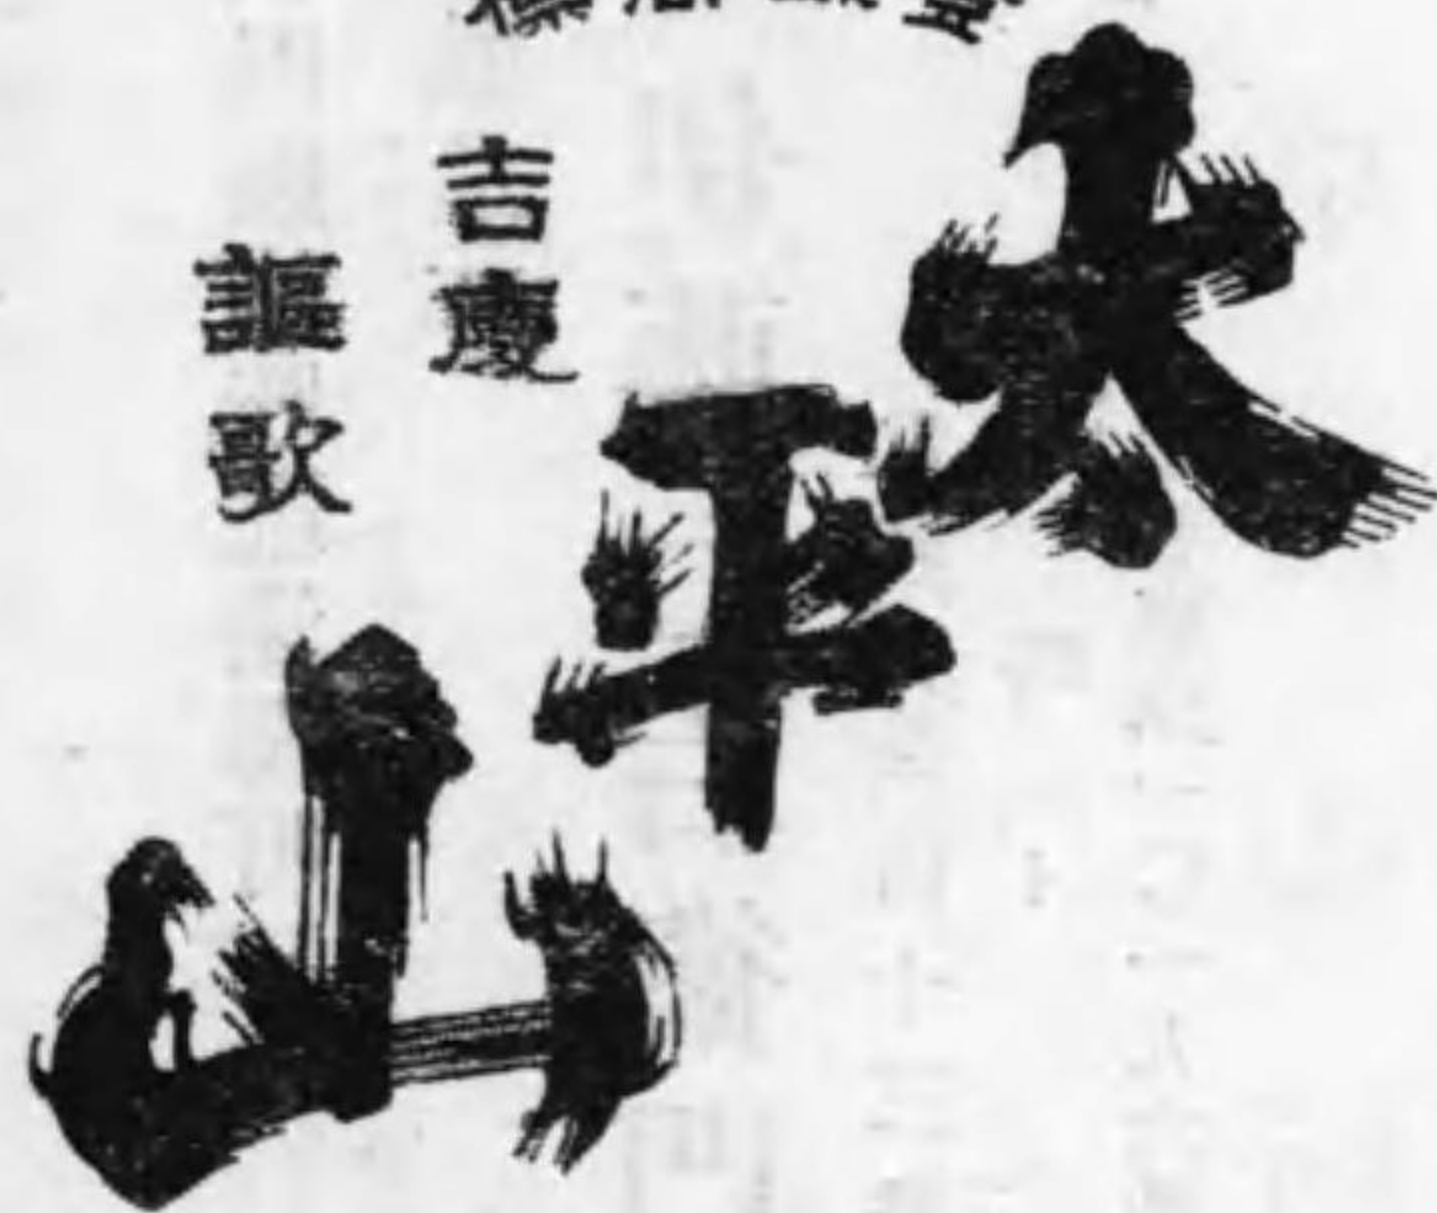 太平山
吉慶
謳歌